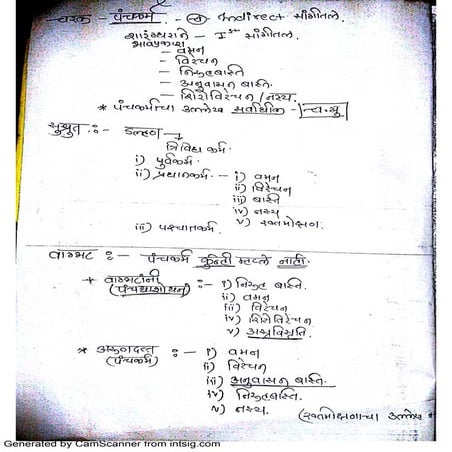 चरक - पंचकर्म - Indirect सांगीतले.
शारंगधराने - Ist सांगीतले.
भावप्रकाश
- वमन
- विरेचन
- निरुहबस्ति
- अनुवासन बस्ति.
- शिरोविरेचन / नस्य.
* पंचकर्माचा उल्लेख सर्वाधीक - च.सू
सुश्रुत :- डल्हण →
त्रिविध कर्म.
i) पुर्वकर्म.
ii) प्रधानकर्म - i) वमन
ii) विरेचन
iii) बस्ति
iv) नस्य
v) रक्तमोक्षण.
iii) पश्चातकर्म.
वाग्भट :- पंचकर्म कुठेही म्हटले नाही.
* वाग्भटांनी :- i) निरुह बस्ति.
(पंचधाशोधन) ii) वमन
iii) विरेचन
iv) शिरोविरेचन
v) अस्रविस्रुति.
* अरुणदत्त :- i) वमन
(पंचकर्म) ii) विरेचन
iii) अनुवासन बस्ति.
iv) निरुहबस्ति.
v) नस्य. (रक्तमोक्षणाचा उल्लेख
Generated by CamScanner from intsig.com